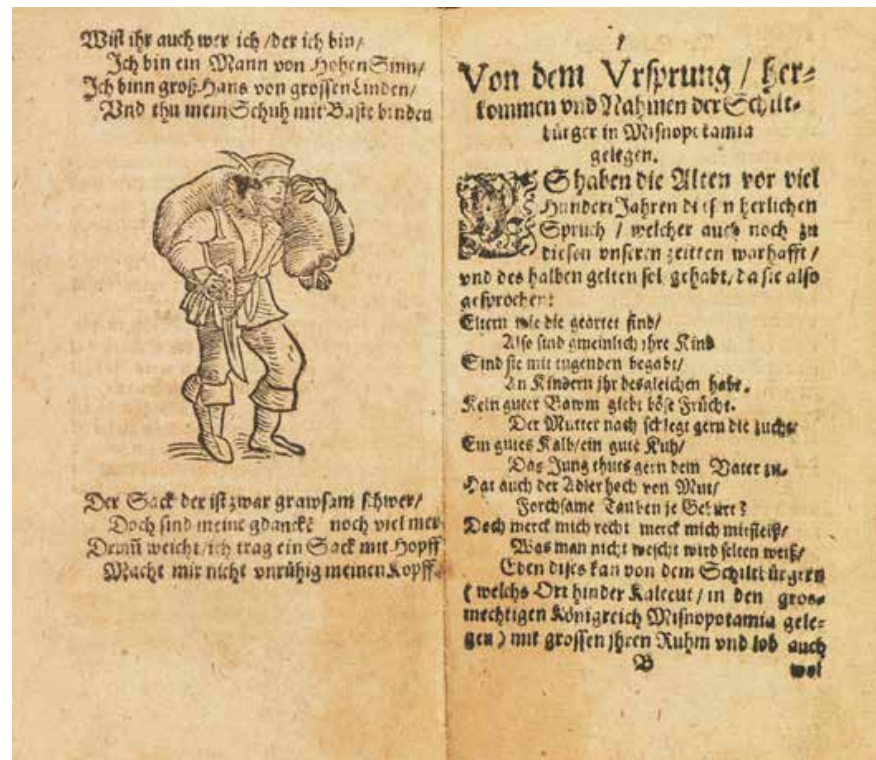 Wist ihr auch wer ich / der ich bin /
Ich bin ein Mann von Hohen Sinn /
Ich binn groß Hans von grossen Linden /
Vnd thu mein Schuh mit Baste binden
Der Sack der ist zwar grawsam schwer /
Doch sind meine gdanckē noch viel mer
Demũ weicht / ich trag ein Sack mit Hopff
Macht mir nicht vnrühig meinen Kopff.
Von dem Vrsprung / her-
kommen vnd Nahmen der Schilt-
bürger in Misnopotamia
gelegen.
ES haben die Alten vor viel
Hundert Jahren diesen herlichen
Spruch / welcher auch noch zu
diesen vnseren zeitten warhafft /
vnd des halben gelten sol gehabt, da sie also
gesprochen:
Eltern wie die geartet sind /
Also sind gmeinlich ihre Kind
Sind sie mit tugenden begabt /
An Kindern jhr desgleichen habt.
Kein guter Bawm giebt böse Frücht.
Der Mutter nach schlegt gern die zucht.
Ein gutes Kalb / ein gute Kuh /
Das Jung thuts gern dem Vater zu.
Hat auch der Adler hoch von Mut /
Forchsame Tauben je Geburt?
Doch merck mich recht merck mich mit fleiß /
Was man nicht wescht wird selten weiß /
Eben dises kan von dem Schiltbürgern
( welchs Ort hinder Kalecut / in den gros-
mechtigen Königreich Misnopotamia gele-
gen ) mit grossen jhren Ruhm vnd lob auch
B wol